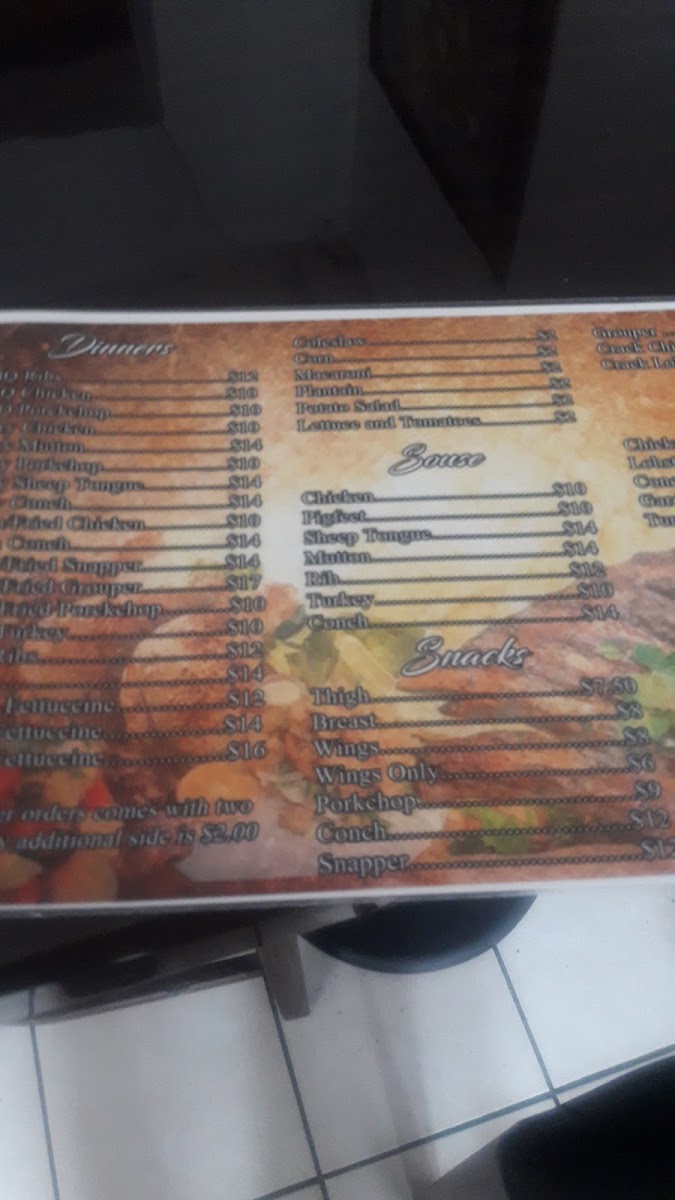 Dinners
Ribs $12
Chicken $10
Porckchop $10
Chicken $10
Mutton $14
Porkchop $10
Sheep Tongue $14
Conch $14
Fried Chicken $10
Conch $14
Fried Snapper $14
Fried Grouper $17
Fried Porckchop $10
Turkey $10
Ribs $12
$14
Fettuccine $12
Fettuccine $14
Fettuccine $16
orders comes with two
additional side is $2.00
Coleslaw $2
Corn $2
Macaroni
Plantain
Potato Salad
Lettuce and Tomatoes $2
Souse
Chicken $10
Pigfeet $10
Sheep Tongue $14
Mutton $14
Rib $12
Turkey $10
Conch $14
Snacks
Thigh $7.50
Breast $8
Wings $8
Wings Only $6
Porkchop $9
Conch $12
Snapper $12
Grouper
Crack
Crack